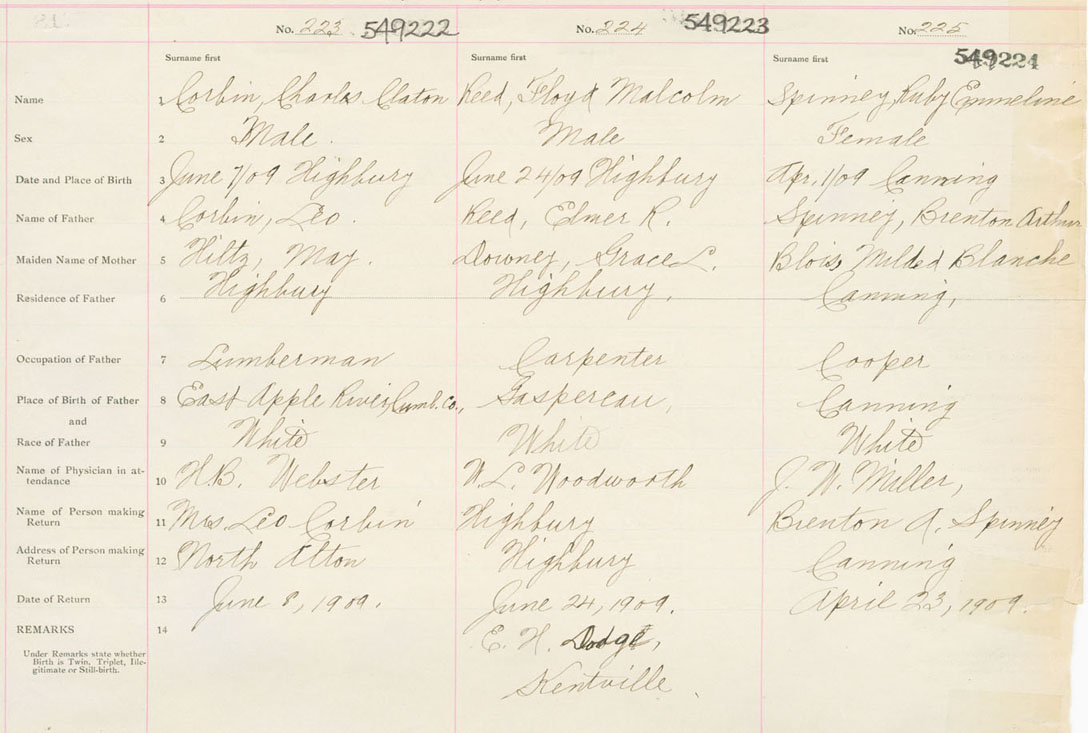 No. 223 549222 No. 224 549223 No. 225
Surname first Surname first Surname first 549224
Name 1 Corbin, Charles Claton Reed, Floyd Malcolm Spinney, Ruby Emmeline
Sex 2 Male. Male Female
Date and Place of Birth 3 June 7/09 Highbury June 24/09 Highbury Apr. 1/09 Canning
Name of Father 4 Corbin, Leo. Reed, Elmer R. Spinney, Brenton Arthur
Maiden Name of Mother 5 Hiltz, May. Downey, Grace L. Blois, Milded Blanche
Residence of Father 6 Highbury Highbury, Canning,
Occupation of Father 7 Lumberman Carpenter Cooper
Place of Birth of Father 8 East Apple River, Cumb. Co., Gaspereau, Canning
and
Race of Father 9 White White White
Name of Physician in at-
tendance 10 H.B. Webster W. L. Woodworth J. W. Miller,
Name of Person making
Return 11 Mrs. Leo Corbin Highbury Brenton A. Spinney
Address of Person making
Return 12 North Alton Highbury Canning
Date of Return 13 June 8, 1909. June 24, 1909. April 23, 1909.
REMARKS 14 E. H. Dodge,
Under Remarks state whether
Birth is Twin, Triplet, Ille-
gitimate or Still-birth.
Kentville